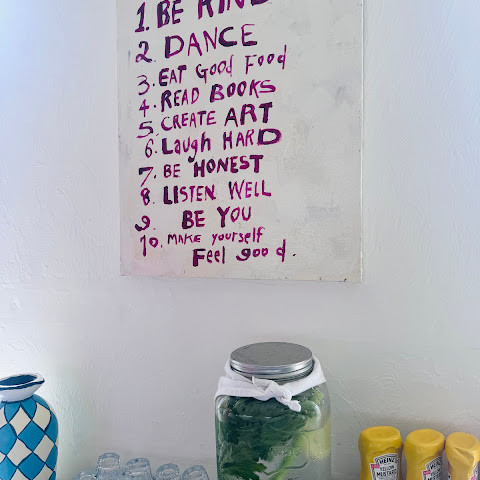 1. BE KIND
2. DANCE
3. EAT Good Food
4. READ BOOKS
5. CREATE ART
6. Laugh HARD
7. BE HONEST
8. LISTEN WELL
9. BE YOU
10. MAKE yourself
Feel good.
HEINZ
YELLOW
MUSTARD
HEINZ